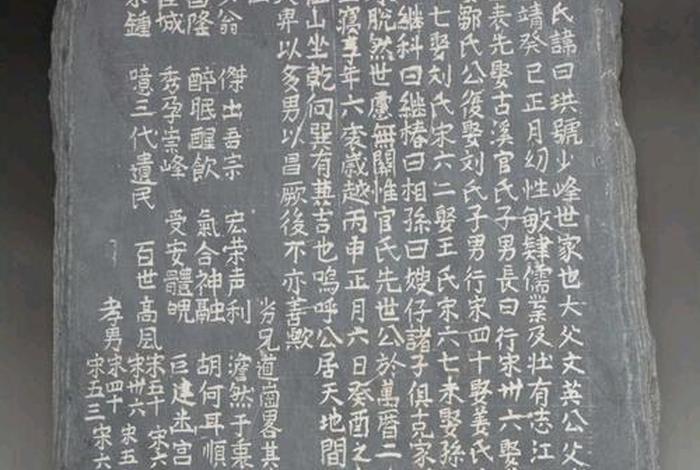 氏諱曰珙號少峰世家也大父文英公父
靖癸巳正月幼性敏肄儒業及壯有志江
表先娶古溪官氏子男長曰行宋卅六娶
鄒氏公復娶刘氏子男行宋四十娶姜氏
七娶刘氏宋六二娶王氏宋六七未娶孫
継科曰継椿曰相孫曰嫂仔諸子俱克家
脫然世慮無關惟官氏先世公於萬曆二
寢享年六袠歲越丙申正月六日癸酉之
山坐乾向巽有其吉也嗚呼公居天地間
卑以多男以昌厥後不亦善歟
劣兄道崗畧其
翁 傑出吾宗 宏荣声利 澹然予秉
昌隆 醉眠醒飲 氣合神融 胡何耳順
城 秀孕崇峰 受安體魄 巨建幽宫
鍾 噫三代遺民 百世高風
孝男 宋五十 宋六
宋卅六 宋五
宋四十
宋五三 宋六